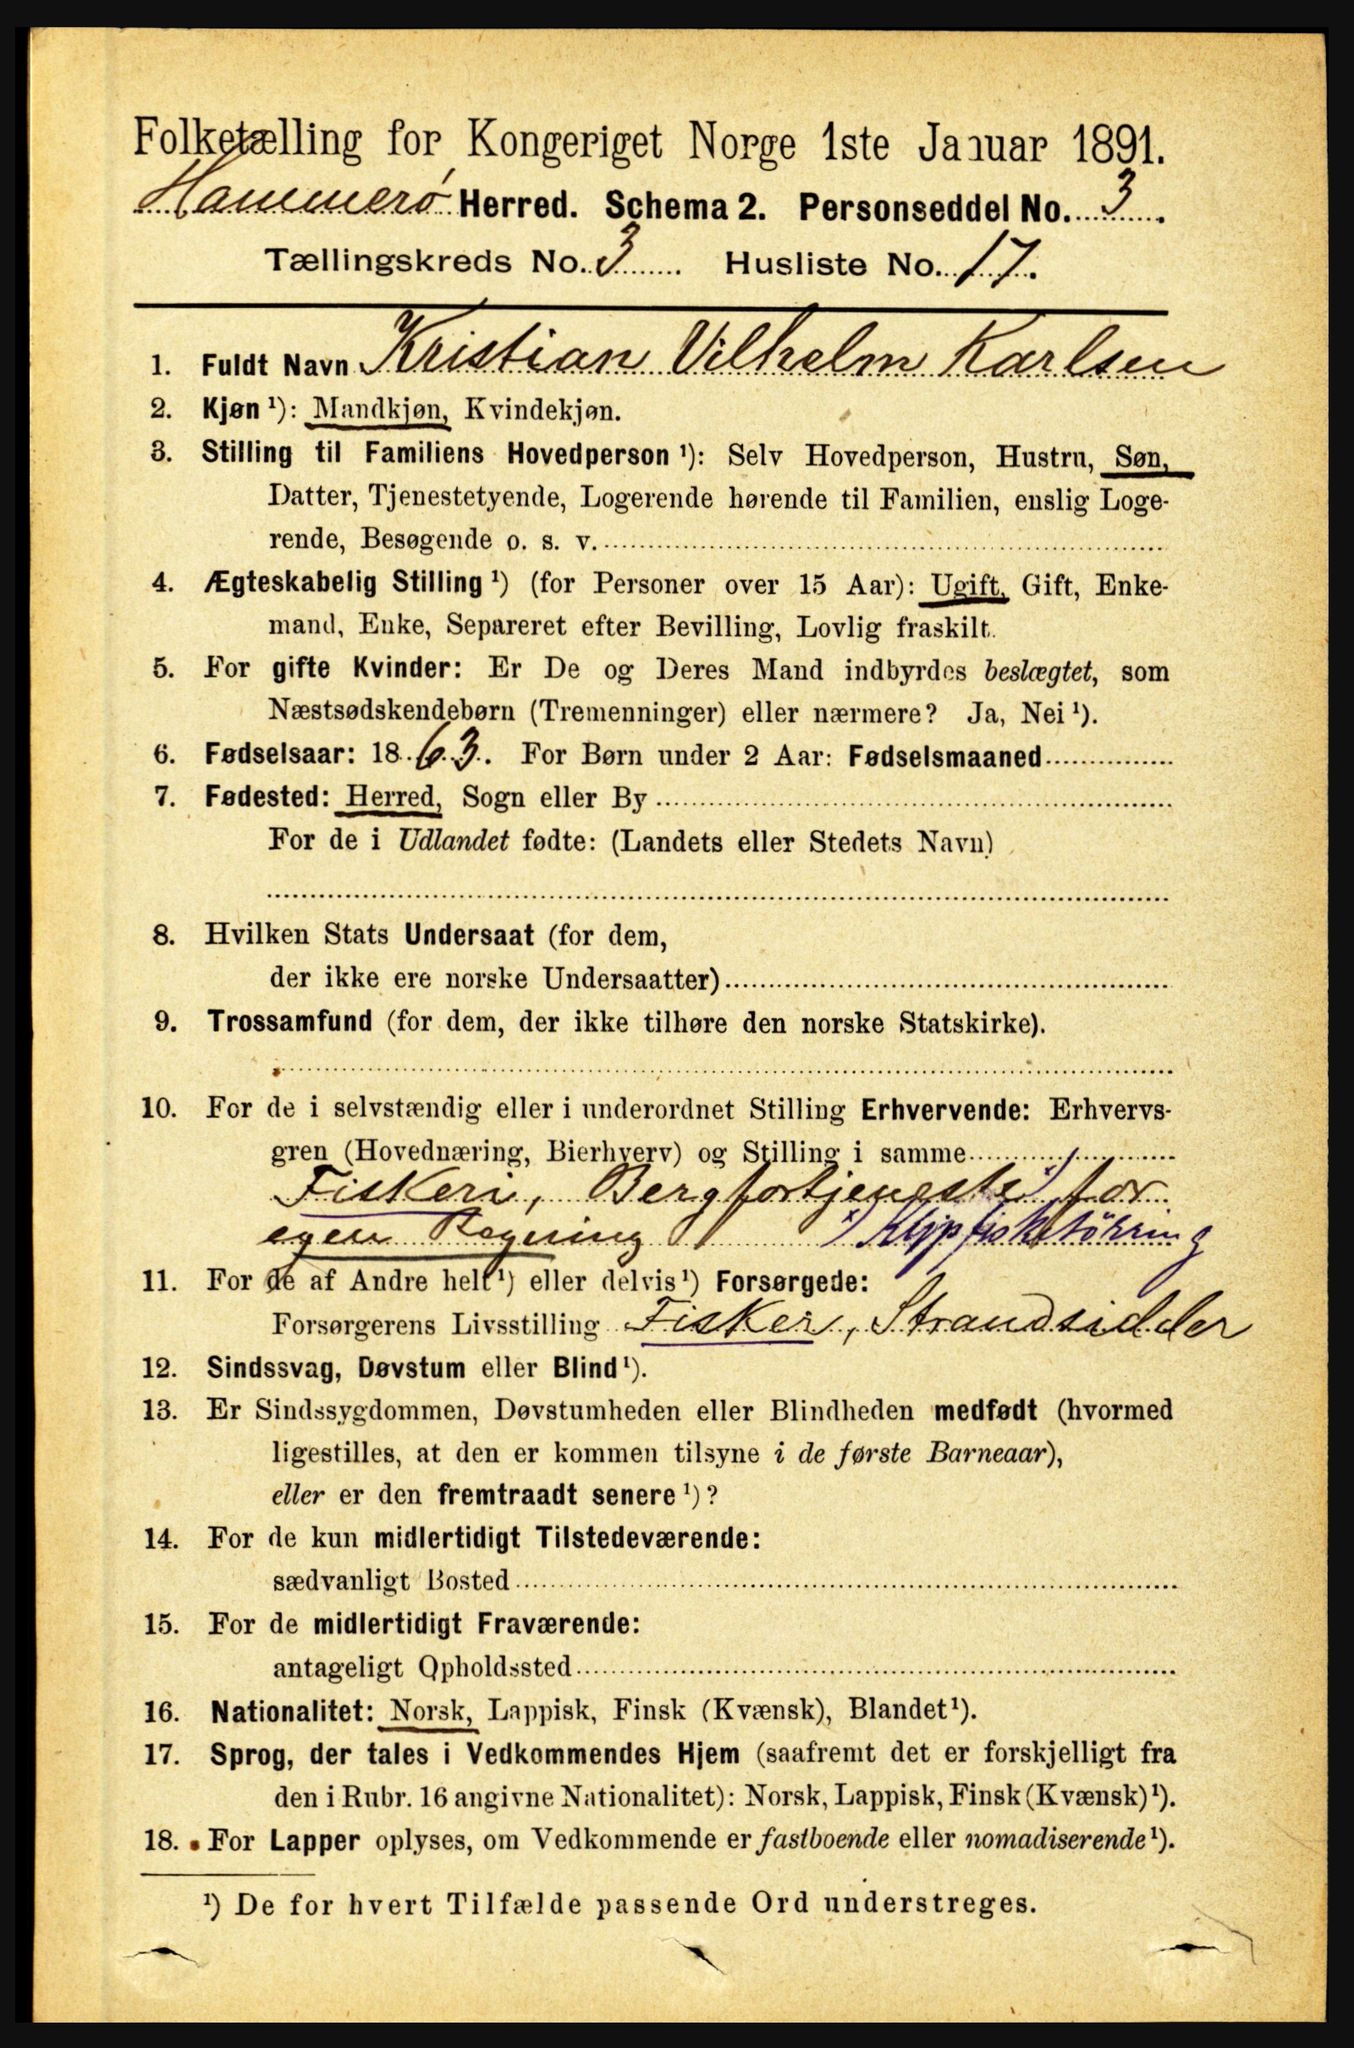 Folketælling for Kongeriget Norge 1ste Januar 1891.
Hammerø Herred. Schema 2. Personseddel No. 3.
Tællingskreds No. 3 Husliste No. 17.
1. Fuldt Navn Kristian Vilhelm Karlsen
2. Kjøn ¹): Mandkjøn, Kvindekjøn.
3. Stilling til Familiens Hovedperson ¹): Selv Hovedperson, Hustru, Søn,
Datter, Tjenestetyende, Logerende hørende til Familien, enslig Loge-
rende, Besøgende o. s. v.
4. Ægteskabelig Stilling ¹) (for Personer over 15 Aar): Ugift, Gift, Enke-
mand, Enke, Separeret efter Bevilling, Lovlig fraskilt.
5. For gifte Kvinder: Er De og Deres Mand indbyrdes beslægtet, som
Næstsødskendebørn (Tremenninger) eller nærmere? Ja, Nei ¹).
6. Fødselsaar: 1863. For Børn under 2 Aar: Fødselsmaaned
7. Fødested: Herred, Sogn eller By
For de i Udlandet fødte: (Landets eller Stedets Navn)
8. Hvilken Stats Undersaat (for dem,
der ikke ere norske Undersaatter)
9. Trossamfund (for dem, der ikke tilhøre den norske Statskirke).
10. For de i selvstændig eller i underordnet Stilling Erhvervende: Erhvervs-
gren (Hovednæring, Bierhverv) og Stilling i samme
Fiskeri, Bergfortjeneste for
egen Regning Klipfisketörring
11. For de af Andre helt ¹) eller delvis ¹) Forsørgede:
Forsørgerens Livsstilling Fisker, Strandsidder
12. Sindssvag, Døvstum eller Blind ¹).
13. Er Sindssygdommen, Døvstumheden eller Blindheden medfødt (hvormed
ligestilles, at den er kommen tilsyne i de første Barneaar),
eller er den fremtraadt senere ¹)?
14. For de kun midlertidigt Tilstedeværende:
sædvanligt Bosted
15. For de midlertidigt Fraværende:
antageligt Opholdssted
16. Nationalitet: Norsk, Lappisk, Finsk (Kvænsk), Blandet ¹).
17. Sprog, der tales i Vedkommendes Hjem (saafremt det er forskjelligt fra
den i Rubr. 16 angivne Nationalitet): Norsk, Lappisk, Finsk (Kvænsk) ¹).
18. For Lapper oplyses, om Vedkommende er fastboende eller nomadiserende ¹).
¹) De for hvert Tilfælde passende Ord understreges.